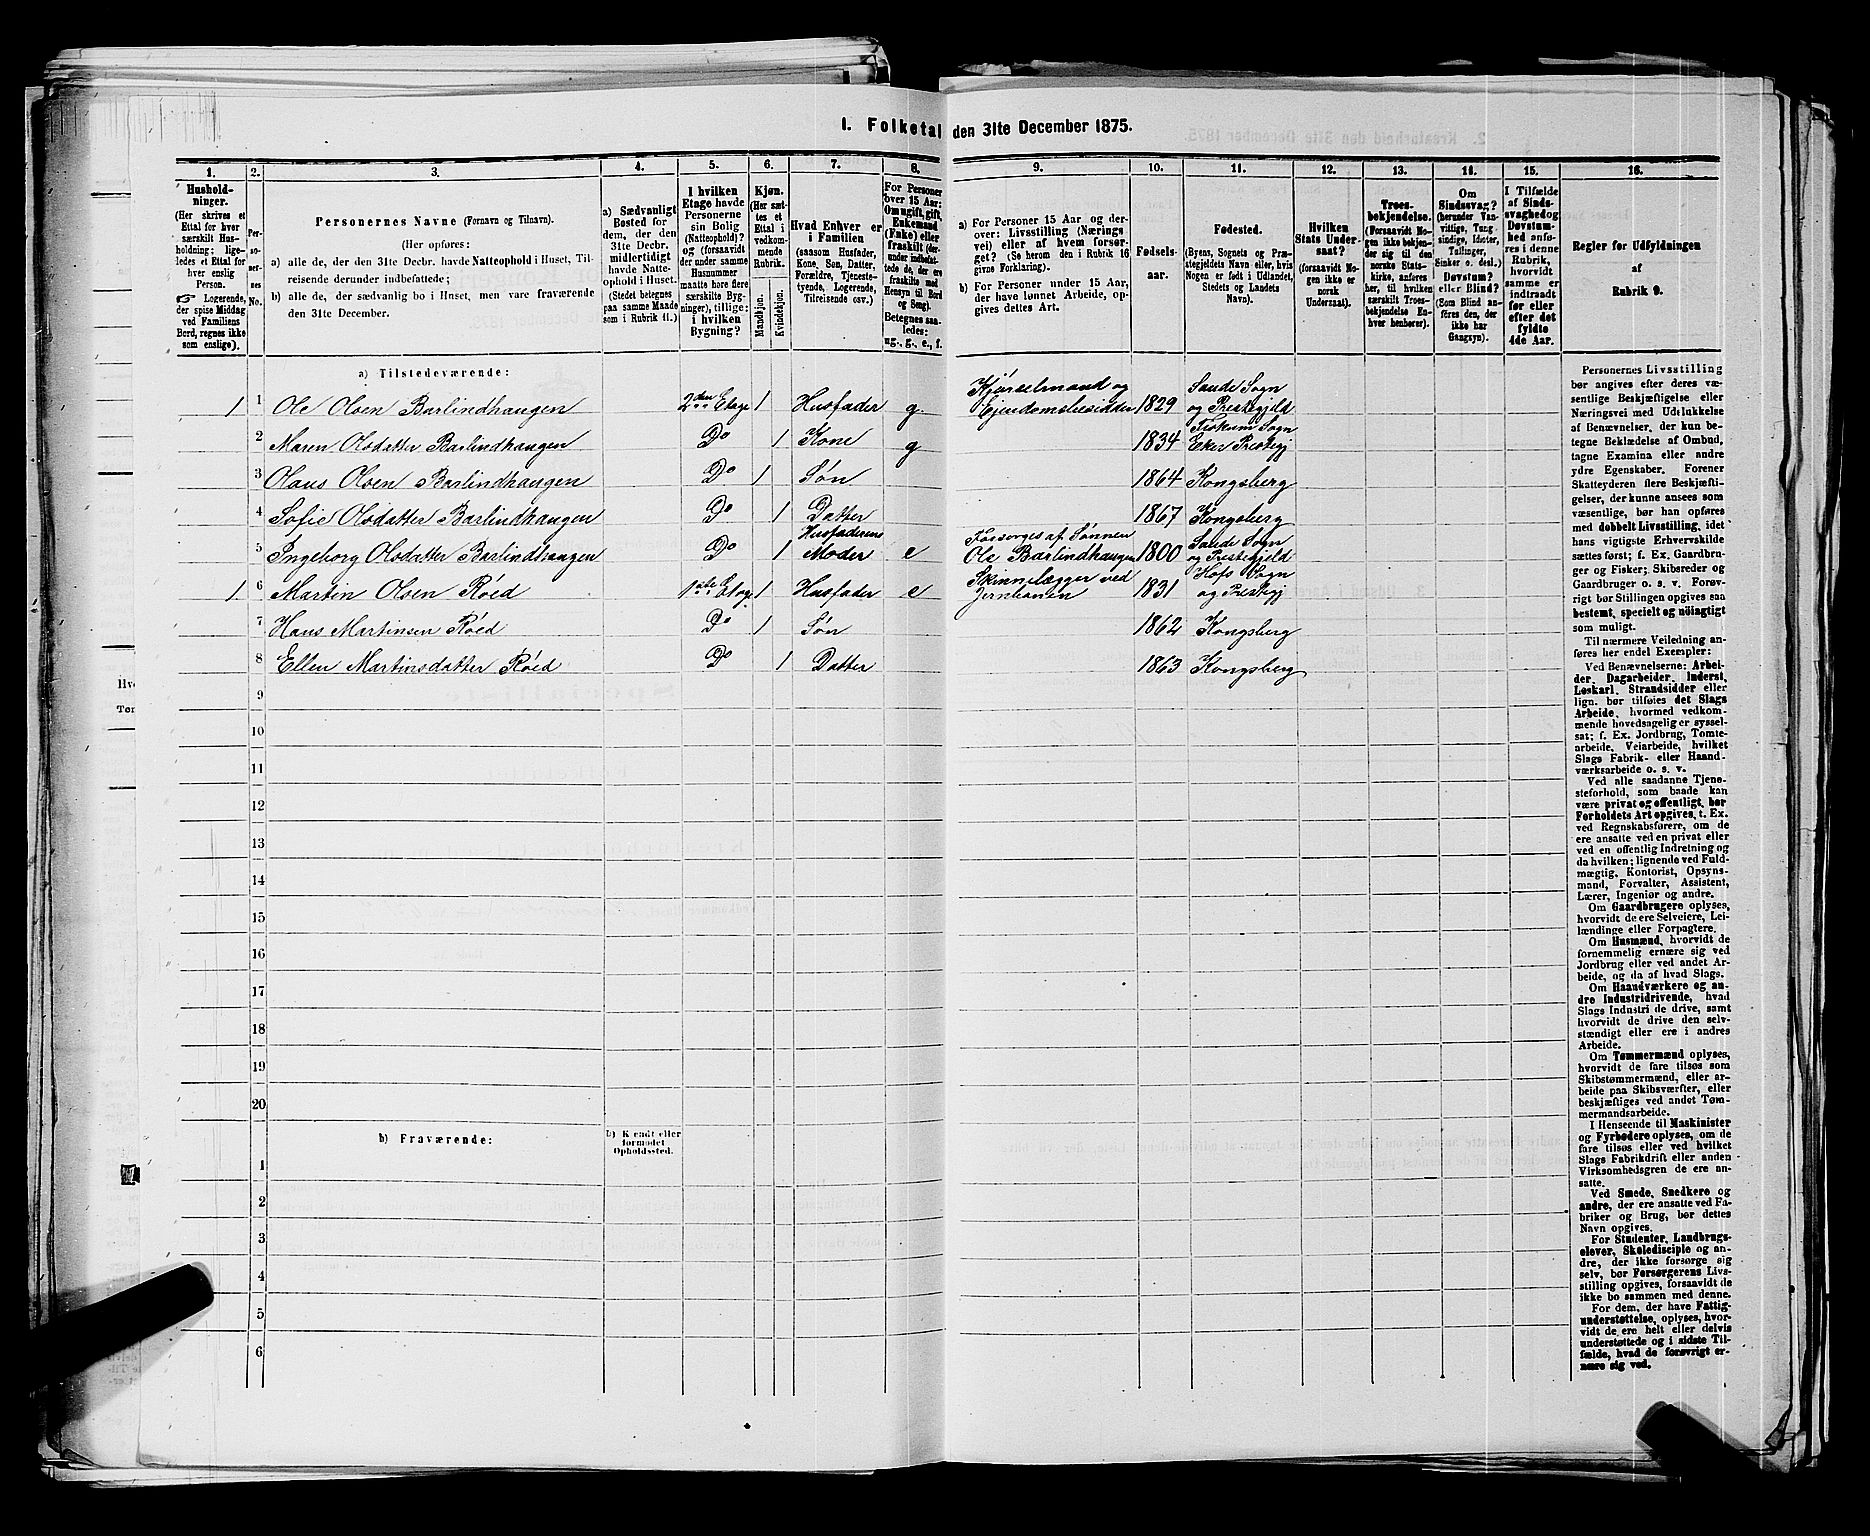 I. Folketal den 31te December 1875.
1.
2.
3.
4.
5.
6.
7.
8.
9.
10.
11.
12.
13.
14.
15.
16.
Hushold-
ninger.
(Her skrives et
Ettal for hver
særskilt Hus-
holdning; lige-
ledes et Ettal for
hver enslig
Person.
☞ Logerende,
der spise Middag
ved Familiens
Bord, regnes ikke
som enslige).
Per-
so-
ner-
nes
No.
Personernes Navne (Fornavn og Tilnavn).
(Her opføres:
a) alle de, der den 31te Decbr. havde Natteophold i Huset, Til-
reisende derunder indbefattede;
b) alle de, der sædvanlig bo i Huset, men vare fraværende
den 31te December.
a) Sædvanligt
Bosted for
dem, der den
31te Decbr.
midlertidigt
havde Natte-
ophold i Huset.
(Stedet betegnes
paa samme Maade
som i Rubrik 11.)
I hvilken
Etage havde
Personerne
sin Bolig
(Natteophold)?
(forsaavidt
der under samme
Husnummer
maatte høre flere
særskilte Byg-
ninger), tillige:
i hvilken
Bygning?
Kjøn.
(Her sæt-
tes et
Ettal i
vedkom-
mende
Rubrik.
Mandkjøn.
Kvindekjøn.
Hvad Enhver er
i Familien
(saasom Husfader,
Kone, Søn, Datter,
Forældre, Tjeneste-
tyende, Logerende,
Tilreisende osv.)
For Personer
over 15 Aar:
Om ugift, gift,
Enkemand
(Enke) eller
fraskilt (der-
under indbefat-
tede de, der ere
fraskilte med
Hensyn til Bord
og Seng).
Betegnes saa-
ledes:
ug., g., e., f.
a) For Personer 15 Aar og der-
over: Livsstilling (Nærings
vei) eller af hvem forsør-
get? (Se herom den i Rubrik 16
givne Forklaring).
b) For Personer under 15 Aar,
der have lønnet Arbeide, op-
gives dettes Art.
Fødsels-
aar.
Fødested.
(Byens, Sognets og Præ-
stegjeldets Navn eller, hvis
Nogen er født i Udlandet,
Stedets og Landets
Navn).
Hvilken
Stats Under-
saat?
(forsaavidt No-
gen ikke er
norsk
Undersaat).
Troes-
bekjendelse.
(Forsaavidt No-
gen ikke bekjen-
der sig til den
norske Stats-
kirke, anføres
her, til hvilken
særskilt Troes-
bekjendelse En-
hver henhører).
Om
Sindssvag?
(herunder Van-
vittige, Tung-
sindige, Idioter,
Tullinger,
Sinker o. desl.)
Døvstum?
eller Blind?
(Som Blind an-
føres den, der
ikke har
Gangsyn).
I Tilfælde
af Sinds-
svaghed og
Døvstum-
hed anfø-
res i denne
Rubrik,
hvorvidt
samme er
indtraadt
før eller
efter det
fyldte
4de Aar.
Regler for Udfyldningen
af
Rubrik 9.
a) Tilstedeværende:
1 1 Ole Olsen Barlindhaugen 2den Etage 1 Husfader g. Kjørselmand og Eiendomsbesidder 1829 Sande Sogn og Prestegjeld
2 Maren Olsdatter Barlindhaugen Do 1 Kone g 1834 Fiskum Sogn Eker Prestegj
3 Olaus Olsen Barlindhaugen Do 1 Søn 1864 Kongsberg
4 Sofie Olsdatter Barlindhaugen Do 1 Datter 1867 Kongsberg
5 Ingeborg Olsdatter Barlindhaugen Do 1 Husfaderens Moder e Forsørges af Sønnen Ole Barlindhaugen 1800 Sande Sogn og Prestegjeld
1 6 Martin Olsen Röed 1ste Etage 1 Husfader e Skinnelægger ved Jernbanen 1831 Hofs Sogn og Prestegj
7 Hans Martinsen Röed Do 1 Søn 1862 Kongsberg
8 Ellen Martinsdatter Röed Do 1 Datter 1863 Kongsberg
9
10
11
12
13
14
15
16
17
18
19
20
b) Fraværende:
b) Kjendt eller
formodet
Opholdssted.
1
2
3
4
5
6
Personernes Livsstilling
bør angives efter deres væ-
sentlige Beskjæftigelse eller
Næringsvei med Udelukkelse
af Benævnelser, der kun be-
tegne Beklædelse af Ombud,
tagne Examina eller andre
ydre Egenskaber. Forener
Skatteyderen flere Beskjæfti-
gelser, der kunne ansees som
væsentlige, bør han opføres
med dobbelt Livsstilling, idet
hans vigtigste Erhvervskilde
sættes først; f. Ex. Gaardbru-
ger og Fisker; Skibsreder og
Gaardbruger o. s. v. Forøv-
rigt bør Stillingen opgives saa
bestemt, specielt og nøiagtigt
som muligt.
Til nærmere Veiledning an-
føres her endel Exempler:
Ved Benævnelserne: Arbei-
der, Dagarbeider, Inderst,
Løskarl, Strandsidder eller
lign. bør tilføies det Slags
Arbeide, hvormed vedkom-
mende hovedsagelig er syssel-
sat; f. Ex. Jordbrug, Tomte-
arbeide, Veiarbeide, hvilket
Slags Fabrik- eller Haand-
værksarbeide o. s. v.
Ved alle saadanne Tjene-
steforhold, som baade kan
være privat og offentligt, bør
Forholdets Art opgives, t. Ex.
ved Regnskabsførere, om de
ere ansatte ved en privat eller
ved en offentlig Indretning og
da hvilken; lignende ved Fuld-
mægtig, Kontorist, Opsyns-
mand, Forvalter, Assistent,
Lærer, Ingeniør og andre.
Om Gaardbrugere oplyses,
hvorvidt de ere Selveiere, Lei-
lændinge eller Forpagtere.
Om Husmænd, hvorvidt de
fornemmelig ernære sig ved
Jordbrug eller ved andet Ar-
beide, og da af hvad Slags.
Om Haandværkere og an-
dre Industridrivende, hvad
Slags Industri de drive, samt
hvorvidt de drive den selv-
stændigt eller ere i andres
Arbeide.
Om Tømmermænd oplyses,
hvorvidt de fare tilsøs som
Skibstømmermænd, eller ar-
beide paa Skibsværfter, eller
beskjæftiges ved andet Tøm-
mermandsarbeide.
I Henseende til Maskinister
og Fyrbødere oplyses, om de
fare tilsøs eller ved hvilket
Slags Fabrikdrift eller anden
Virksomhedsgren de ere an-
satte.
Ved Smede, Snedkere og
andre, der ere ansatte ved Fa-
briker og Brug, bør dettes
Navn opgives.
For Studenter, Landbrugs-
elever, Skoledisciple og an-
dre, der ikke forsørge sig
selv, bør Forsørgerens Livs-
stilling opgives, forsaavidt de
ikke bo sammen med denne.
For dem, der have Fattig-
understøttelse, oplyses, hvor-
vidt de ere helt eller delvis
understøttede og i sidste Til-
fælde, hvad de forøvrigt er-
nære sig ved.